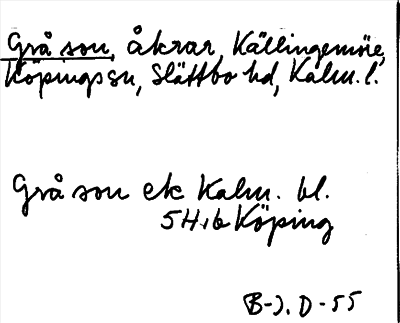 Grå son, åkrar, Källingemöre,
Köpings sn, Slättbo hd, Kalm. l.
Grå son ek Kalm. bl.
5H1b Köping
B-J. D-55